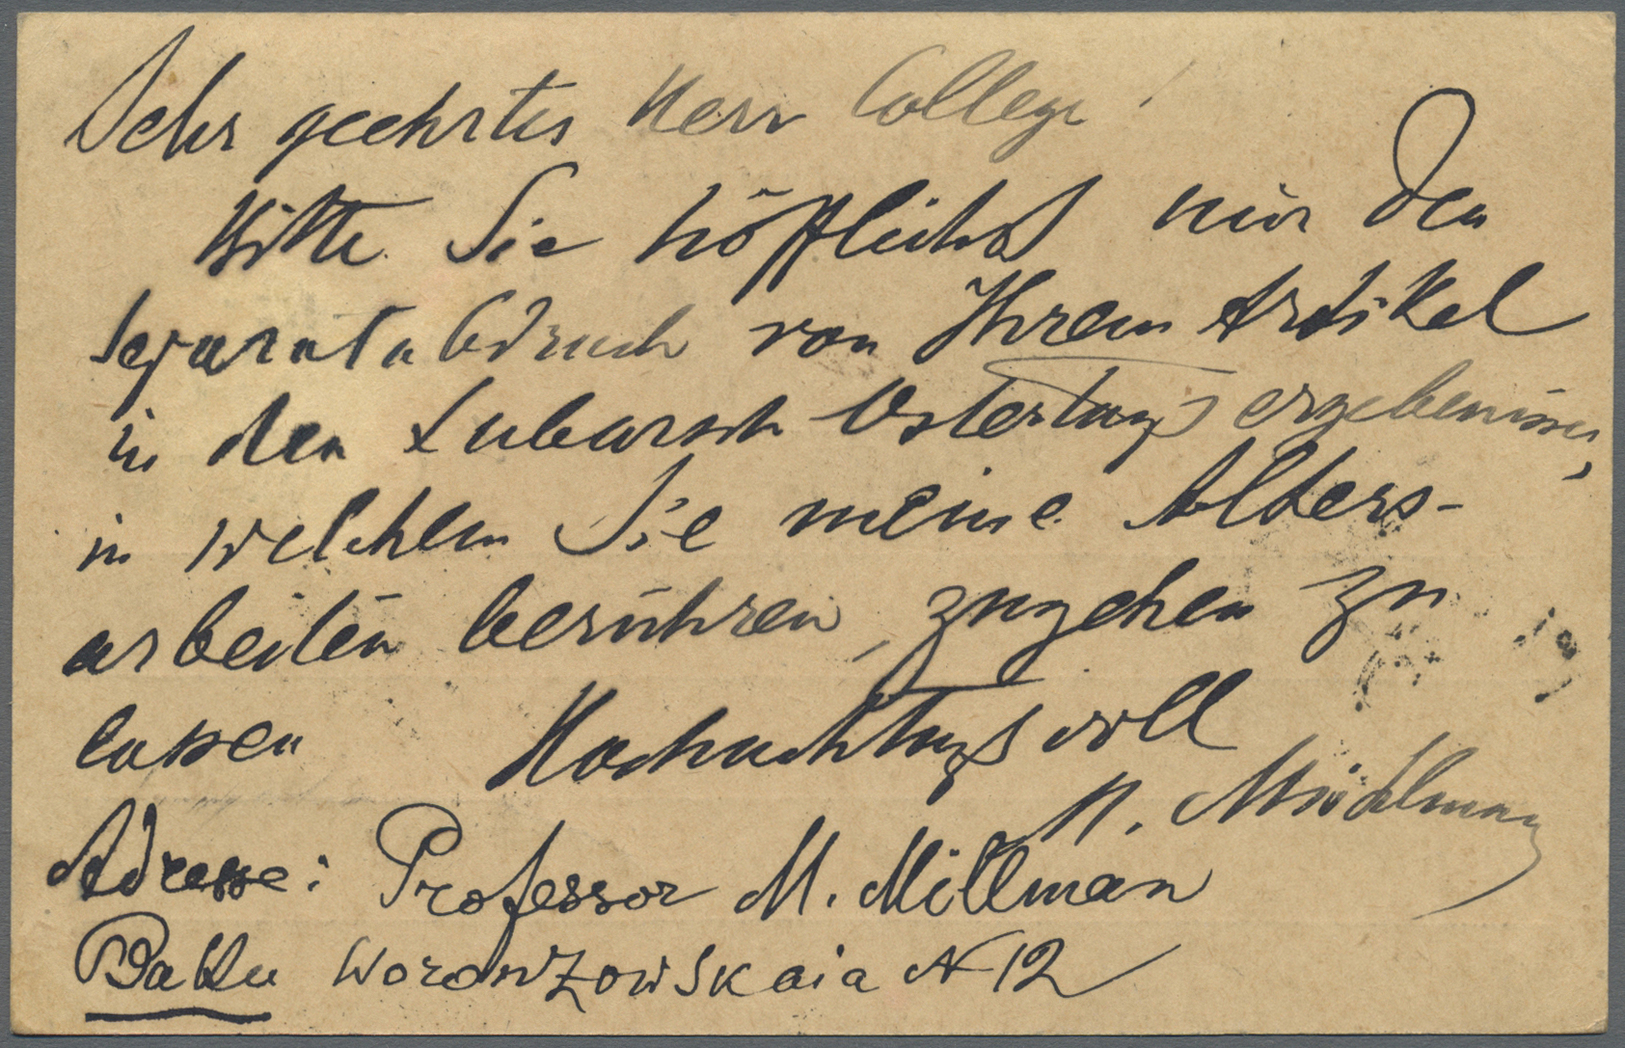 Sehr geehrter Herr College!
Bitte Sie höfflichst mir den
Separatabdruck von Ihrem Artikel
in den Lubarsch Ostertags ergebenissen,
in welchem Sie meine Alters-
arbeiten berühren, zugehen zu
lassen Hochachtungsvoll
M. Millman
Adresse: Professor M. Millman
Baku Woronzowskaia N 12